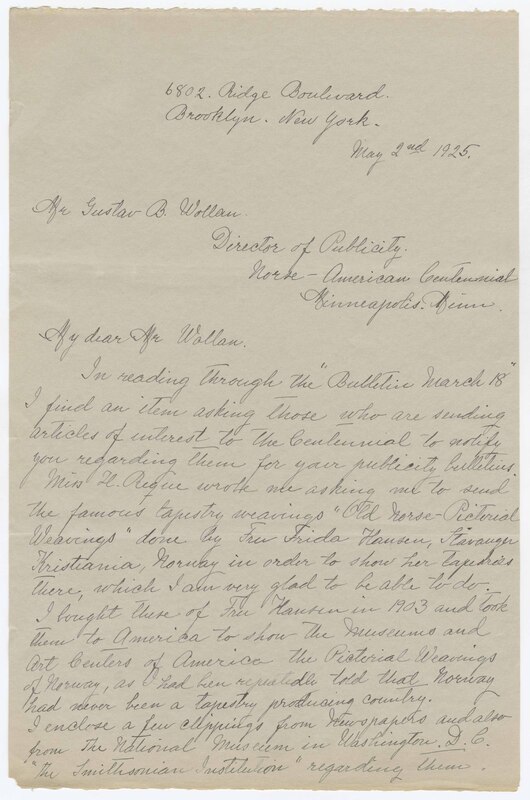 6802. Ridge Boulevard.
Brooklyn. New York.
May 2nd 1925.
Mr Gustav B. Wollan.
Director of Publicity.
Norse-American Centennial
Minneapolis. Minn.
My dear Mr Wollan.
In reading through the "Bulletin March 18"
I find an item asking those who are sending
articles of interest to the Centennial to notify
you regarding them for your publicity bulletins.
Miss H. Reque wrote me asking me to send
the famous tapestry weavings "Old Norse-Pictorial
Weavings" done by Fru Frida Hansen, Stavanger
Kristiania, Norway in order to show her tapestries
there, which I am very glad to be able to do.
I bought these of Fru Hansen in 1903 and took
them to America to show the Museums and
Art Centers of America the Pictorial Weavings
of Norway, as I had been repeatedly told that Norway
had never been a tapestry producing country.
I enclose a few clippings from Newspapers and also
from The National Museum in Washington. D.C.
"the Smithsonian Institution" regarding them.